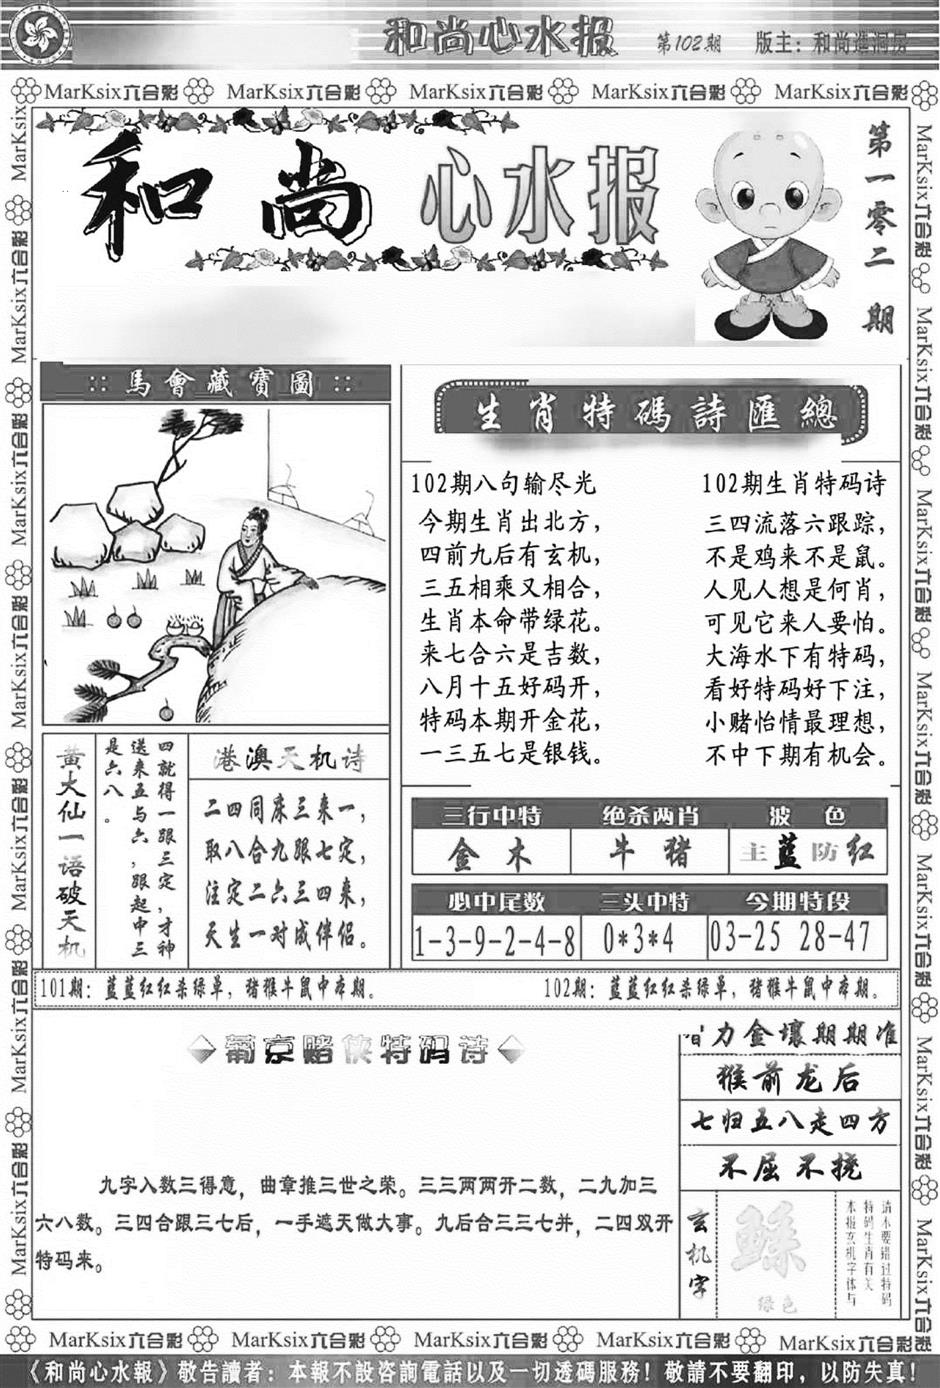 和尚心水报 第102期 版主：和尚進洞房
MarKsix六合彩 MarKsix六合彩 MarKsix六合彩 MarKsix六合彩 MarKsix六合彩
和尚心水报
第一零二期
::馬會藏寶圖::
生肖特碼詩匯總
102期八句输尽光
今期生肖出北方，
四前九后有玄机，
三五相乘又相合，
生肖本命带绿花。
来七合六是吉数，
八月十五好码开，
特码本期开金花，
一三五七是银钱。
102期生肖特码诗
三四流落六跟踪，
不是鸡来不是鼠。
人见人想是何肖，
可见它来人要怕。
大海水下有特码，
看好特码好下注，
小赌怡情最理想，
不中下期有机会。
黄大仙一语破天机
四就得一跟三定，才神
送来五与六，跟起中三
是六八。
港澳天机诗
二四同床三来一，
取八合九跟七定，
注定二六三四来，
天生一对成伴侣。
三行中特 绝杀两肖 波 色
金 木 牛 猪 主蓝防红
必中尾数 三头中特 今期特段
1-3-9-2-4-8 0*3*4 03-25 28-47
101期：蓝蓝红红杀绿单，猪猴牛鼠中本期。 102期：蓝蓝红红杀绿单，猪猴牛鼠中本期。
葡京赌侠特码诗
九字入数三得意，曲章推三世之荣。三三两两开二数，二九加三
六八数。三四合跟三七后，一手遮天做大事。九后合三三七并，二四双开
特码来。
力金壤期期准
猴前龙后
七归五八走四方
不屈不挠
玄机字
绿色
请不要错过特码
特码生肖有关
本报玄机字体与
MarKsix六合彩 MarKsix六合彩 MarKsix六合彩 MarKsix六合彩 MarKsix六合彩
《和尚心水報》敬告讀者：本報不設咨詢電話以及一切透碼服務！敬請不要翻印，以防失真！